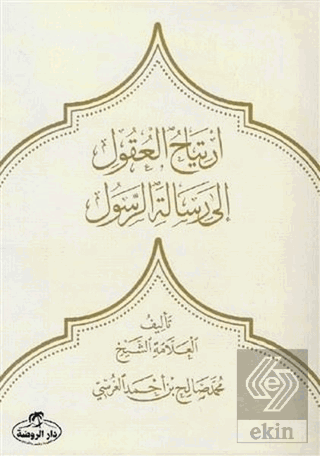 ارتياح العقول
إلى رسالة الرسول
تأليف
العلامة الشيخ
محمد صالح بن أحمد الغرسي
دار الروضة
e
ekin